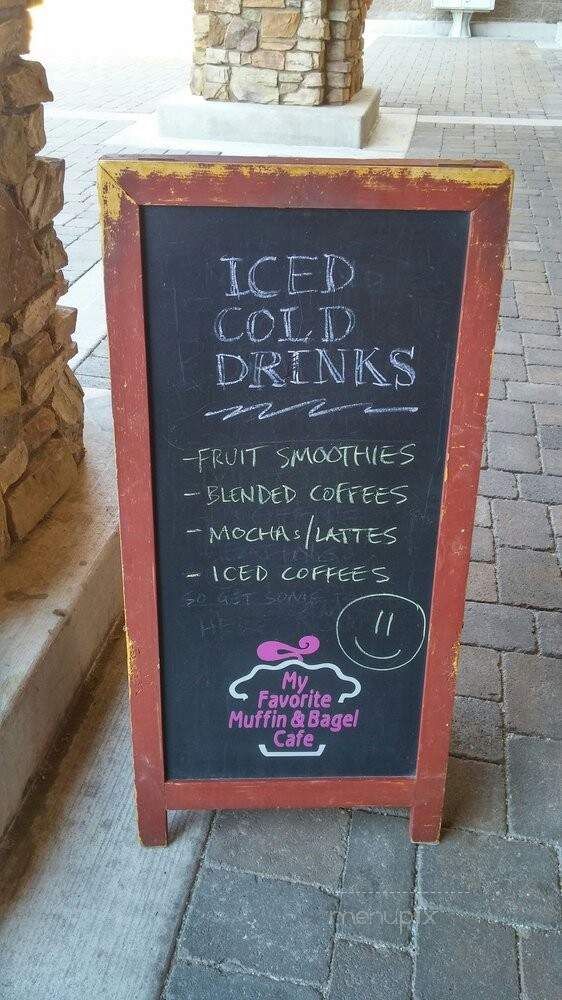 ICED
COLD
DRINKS
-FRUIT SMOOTHIES
- BLENDED COFFEES
- MOCHAs/LATTES
- ICED COFFEES
SO GET SOME
My
Favorite
Muffin & Bagel
Cafe
menupix